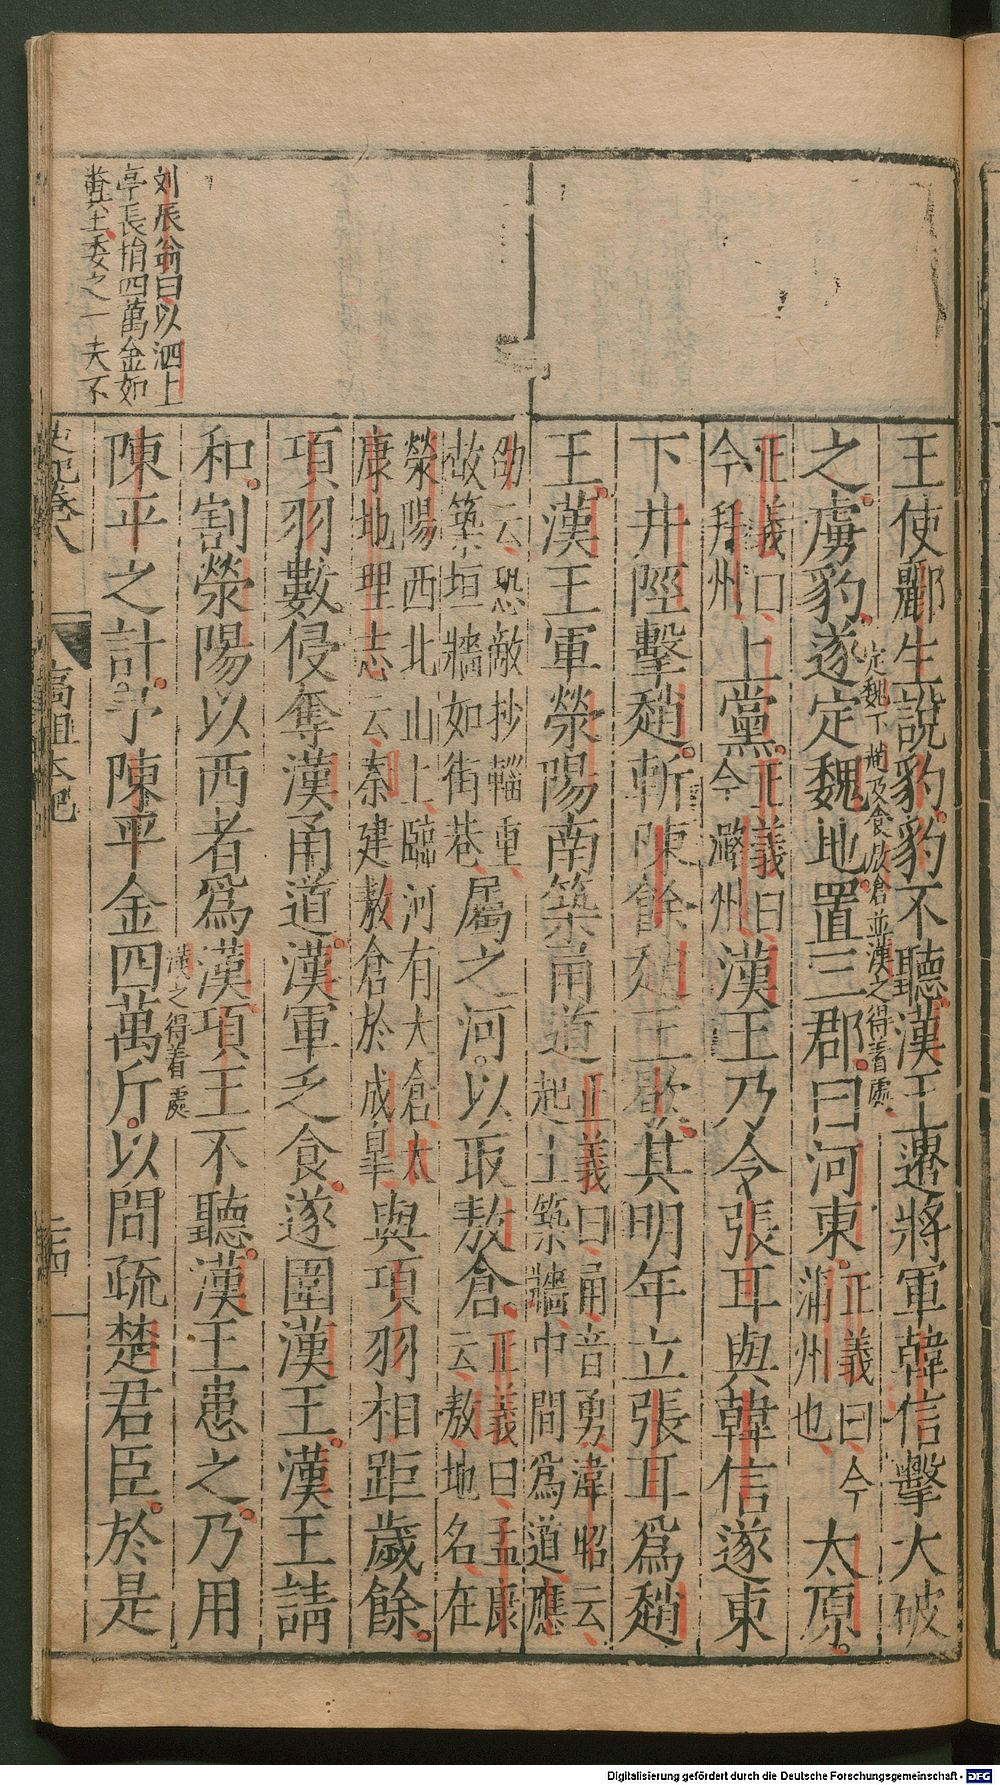 劉辰翁曰以泗上
亭長捐四萬金如
糞土委之一夫不
王使酈生說豹豹不聽漢王遣將軍韓信擊大破
定魏下趙及食敖倉並漢之得着處
之虜豹遂定魏地置三郡曰河東正義曰今蒲州也太原
正義曰今并州上黨正義曰今潞州漢王乃令張耳與韓信遂東
下井陘擊趙斬陳餘趙王歇其明年立張耳爲趙
王漢王軍滎陽南築甬道正義曰甬音勇韋昭云起土築牆中間爲道應
劭云恐敵抄輜重故築垣牆如街巷屬之河以取敖倉正義曰孟康云敖地名在
滎陽西北山上臨河有大倉太康地理志云秦建敖倉於成皐與項羽相距歲餘
項羽數侵奪漢甬道漢軍乏食遂圍漢王漢王請
和割滎陽以西者爲漢項王不聽漢王患之乃用
漢之得着處
陳平之計予陳平金四萬斤以間疏楚君臣於是
史記卷八 高祖本紀 二四
Digitalisierung gefördert durch die Deutsche Forschungsgemeinschaft - DFG